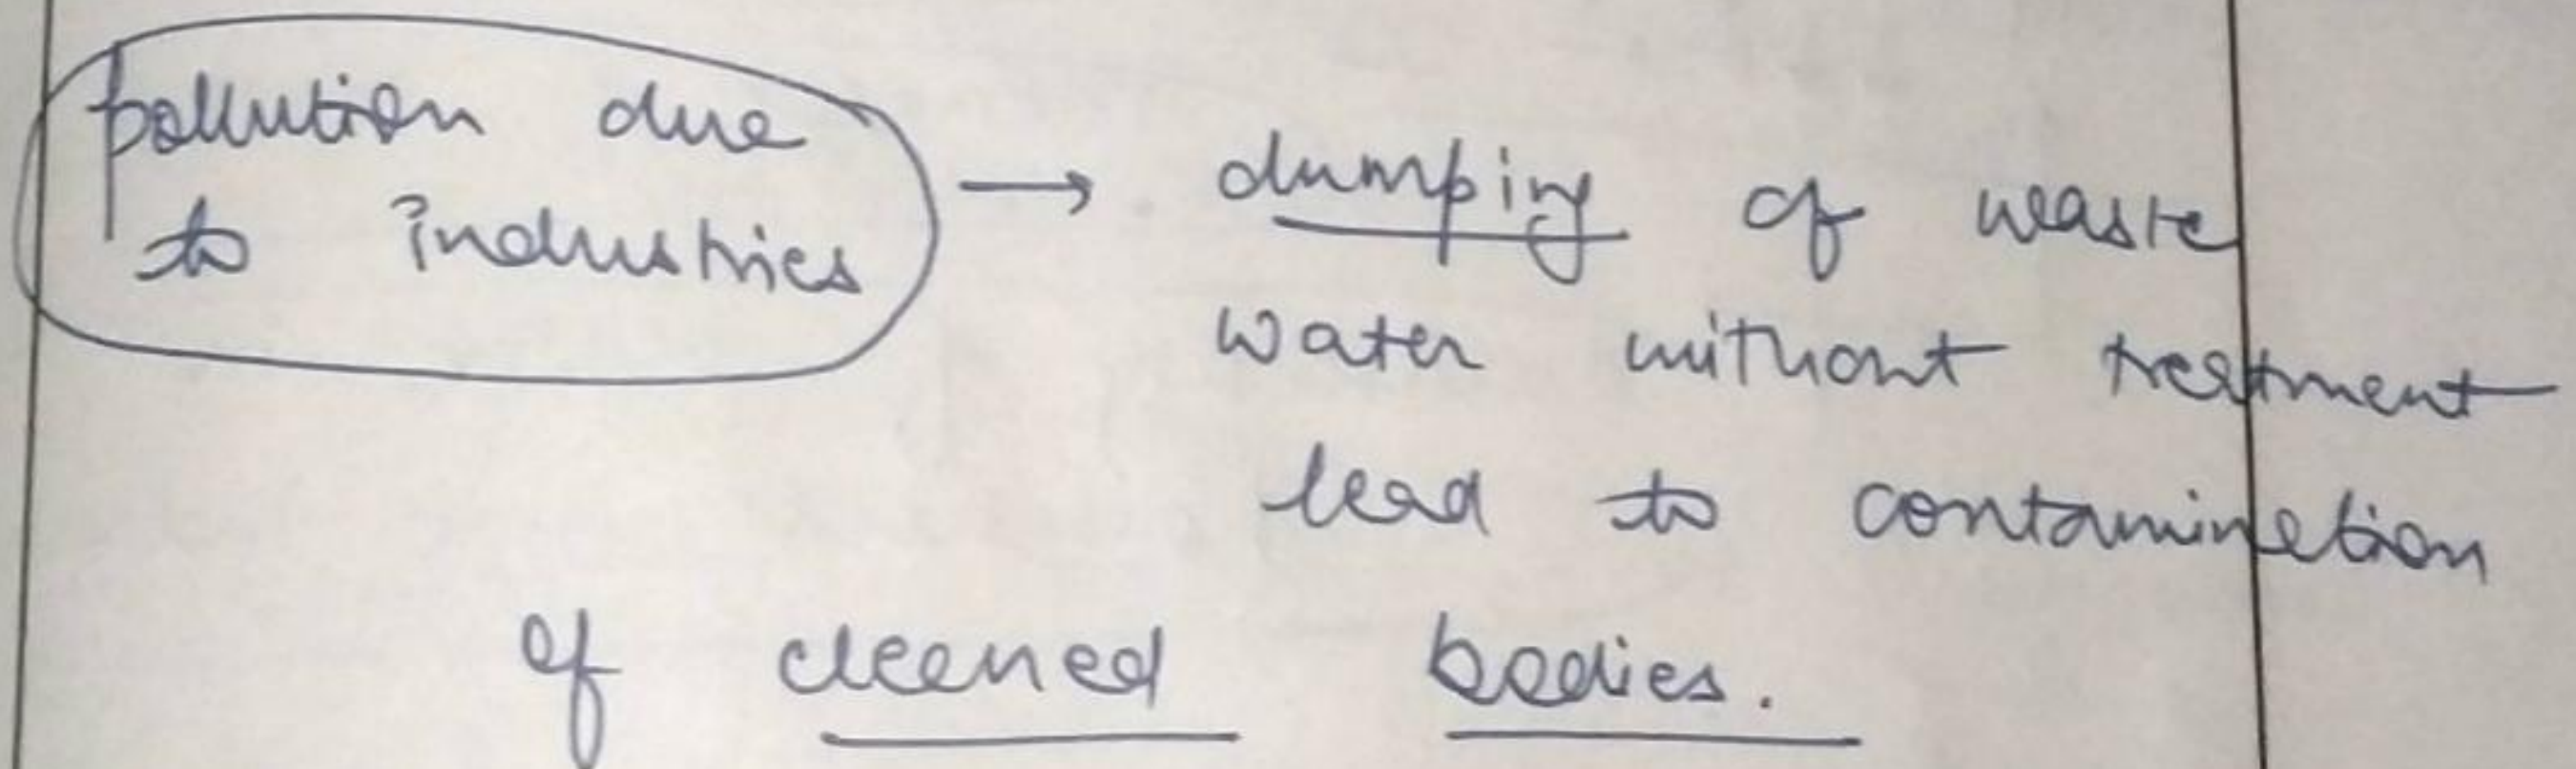 pollution due
to industries
→ dumping of waste
water without treatment
lead to contamination
of cleaned bodies.